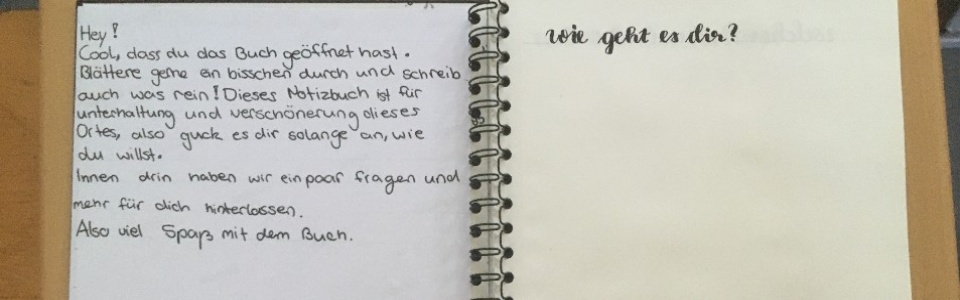 Hey!
Cool, dass du das Buch geöffnet hast.
Blättere gerne ein bisschen durch und schreib
auch was rein! Dieses Notizbuch ist für
unterhaltung und verschönerung dieses
Ortes, also guck es dir solange an, wie
du willst.
Innen drin haben wir ein paar fragen und
mehr für dich hinterlassen.
Also viel Spaß mit dem Buch.
wie geht es dir?